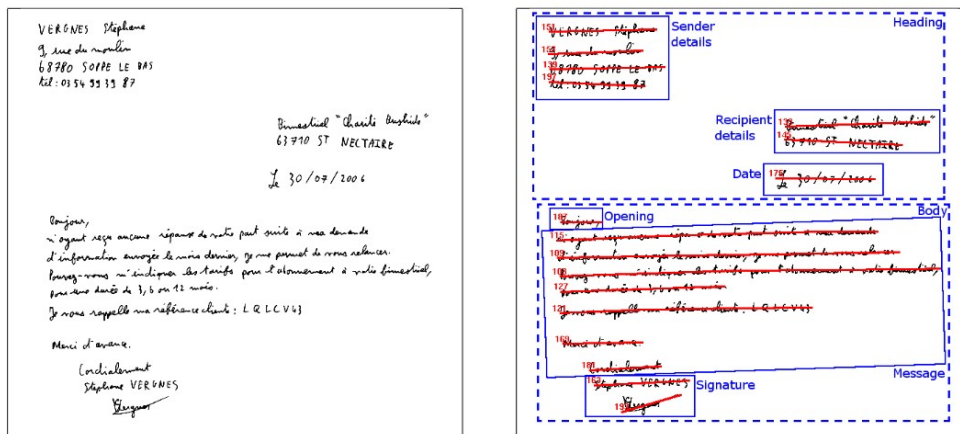 VERGNES Stéphane
9, rue du moulin
68780 SOPPE LE BAS
tél: 03 54 99 39 87
Bimestriel "Charité Bushido"
63710 ST NECTAIRE
Le 30/07/2006
Bonjour,
n'ayant reçu aucune réponse de votre part suite à ma demande
d'information envoyée le mois dernier, je me permet de vous relancer.
Pouvez-vous m'indiquer les tarifs pour l'abonnement à votre bimestriel,
pour une durée de 3, 6 ou 12 mois.
Je vous rappelle ma référence client : LQLCV43
Merci d'avance.
Cordialement
Stéphane VERGNES
Vergnes
Heading
151
VERGNES Stéphane
Sender
details
9, rue du moulin
139
68780 SOPPE LE BAS
197
tél: 03 54 99 39 87
Recipient
details
Bimestriel "Charité Bushido"
63710 ST NECTAIRE
Date
175
Le 30/07/2006
Body
187
Bonjour,
Opening
115
n'ayant reçu aucune réponse de votre part suite à ma demande
109
d'information envoyée le mois dernier, je me permet de vous relancer.
Pouvez-vous m'indiquer les tarifs pour l'abonnement à votre bimestriel,
127
pour une durée de 3, 6 ou 12 mois.
Je vous rappelle ma référence client : LQLCV43
169
Merci d'avance.
181
Cordialement
Message
163
Stéphane VERGNES
Signature
Vergnes